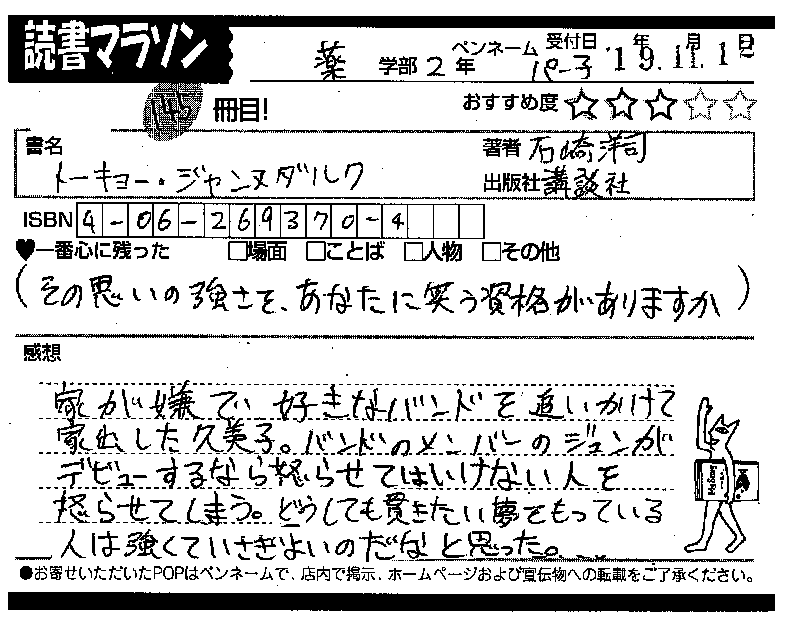 読書マラソン
薬 学部 2 年 ペンネーム パー子 受付日 '19年 11月 12日
145 冊目! おすすめ度 ★★★☆☆
書名 トーキョー・ジャンヌダルク
著者 石崎洋司
出版社 講談社
ISBN 4-06-269370-4
♥一番心に残った □場面 □ことば □人物 □その他
(その思いの強さを、あなたに笑う資格がありますか)
感想
家が嫌で、好きなバンドを追いかけて
家出した久美子。バンドのメンバーのジュンが
デビューするなら怒らせてはいけない人を
怒らせてしまう。どうしても貫きたい夢をもっている
人は強くていさぎよいのだなと思った。
●お寄せいただいたPOPはペンネームで、店内で掲示、ホームページおよび宣伝物への転載をご了承ください。